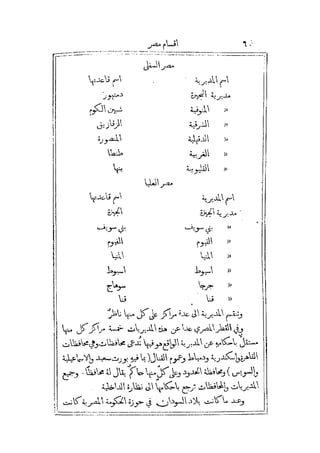 ٦٠ اقسام مصر
مصر السفلى
اسم المديرية اسم قاعدتها
مديرية البحيرة دمنهور
» المنوفية شبين الكوم
» الشرقية الزقازيق
» الدقهلية المنصورة
» الغربية طنطا
» القليوبية بنها
مصر العليا
اسم المديرية اسم قاعدتها
مديرية الجيزة الجيزة
» بني سويف بني سويف
» الفيوم الفيوم
» المنيا المنيا
» اسيوط اسيوط
» جرجا سوهاج
» قنا قنا
وتنقسم المديرية الى عدة مراكز على كل منها ناظر
وفي القطر المصري عدا عن هذه المديريات خمسة مراكز كل منها
مستقل باحكامه عن المديرية الواقع هو فيها تُدعى محافظات وهي محافظات
القاهرة واسكندرية ودمياط وعموم القنال (بما فيه بورت سعيد والاسماعيلية
والسويس) ومحافظة الحدود وعلى كل منها حاكم يقال له محافظ. وجميع
المديريات والمحافظات ترجع باحكامها الى نظارة الداخلية
وعند ما كانت بلاد السودان في حوزة الحكومة المصرية كانت